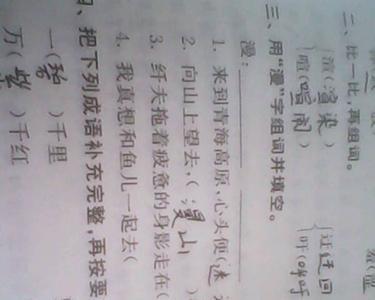 二、比一比,再组词。
渲(渲染) 迂(迂回
喧(喧闹) 吁(呼吁
三、用“漫”字组词并填空。
漫:
1. 来到青海高原,心头便(迷
2. 向山上望去,(漫山
3. 纤夫拖着疲惫的身影走在(
4. 我真想和鱼儿一起去(
、把下列成语补充完整,再按要
一( )千里
万(紫)千红